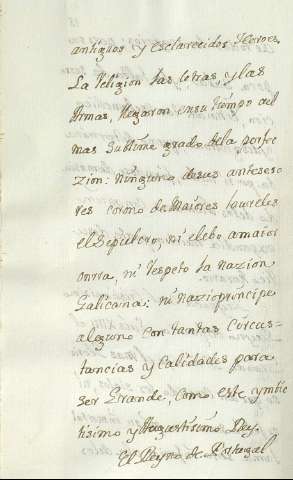 antiguos y esclarecidos Heroes.
La Religion las letras, y las
Armas, llegaron en su tiempo al
mas sublime grado de la perfec
zion: ninguno de sus anteseso
res corono de Maiores laureles
el Sepulcro, ni elebo a maior
onrra, ni respeto la nazion
Galicana: ni nazio principe
alguno con tantas circus-
tancias y calidades para
ser Grande, como este ynvic
tisimo y Augustisimo Rey.
El Reyno de Portugal